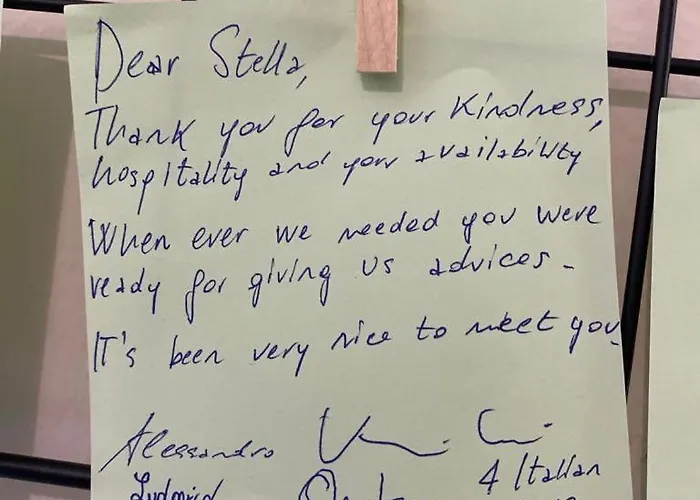 Dear Stella,
Thank you for your Kindness,
hospitality and your availability
When ever we needed you were
ready for giving us advices -
It's been very nice to meet you
Alessandro
4 Italian